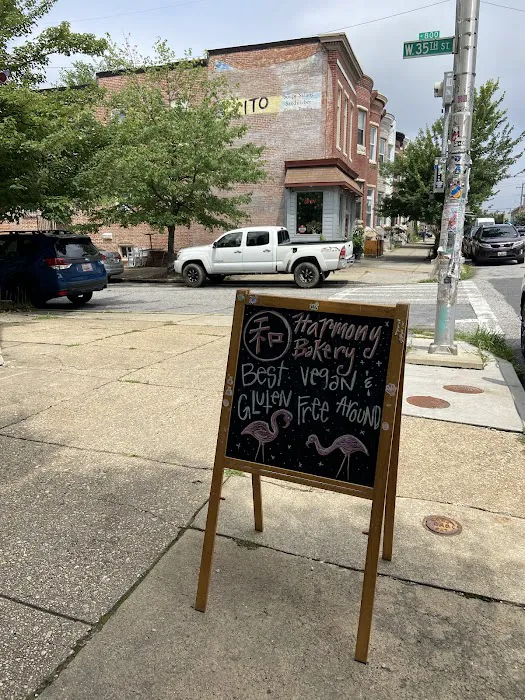 800
W. 35TH ST.
ITO
和
Harmony
Bakery
Best vegan &
Gluten Free Around